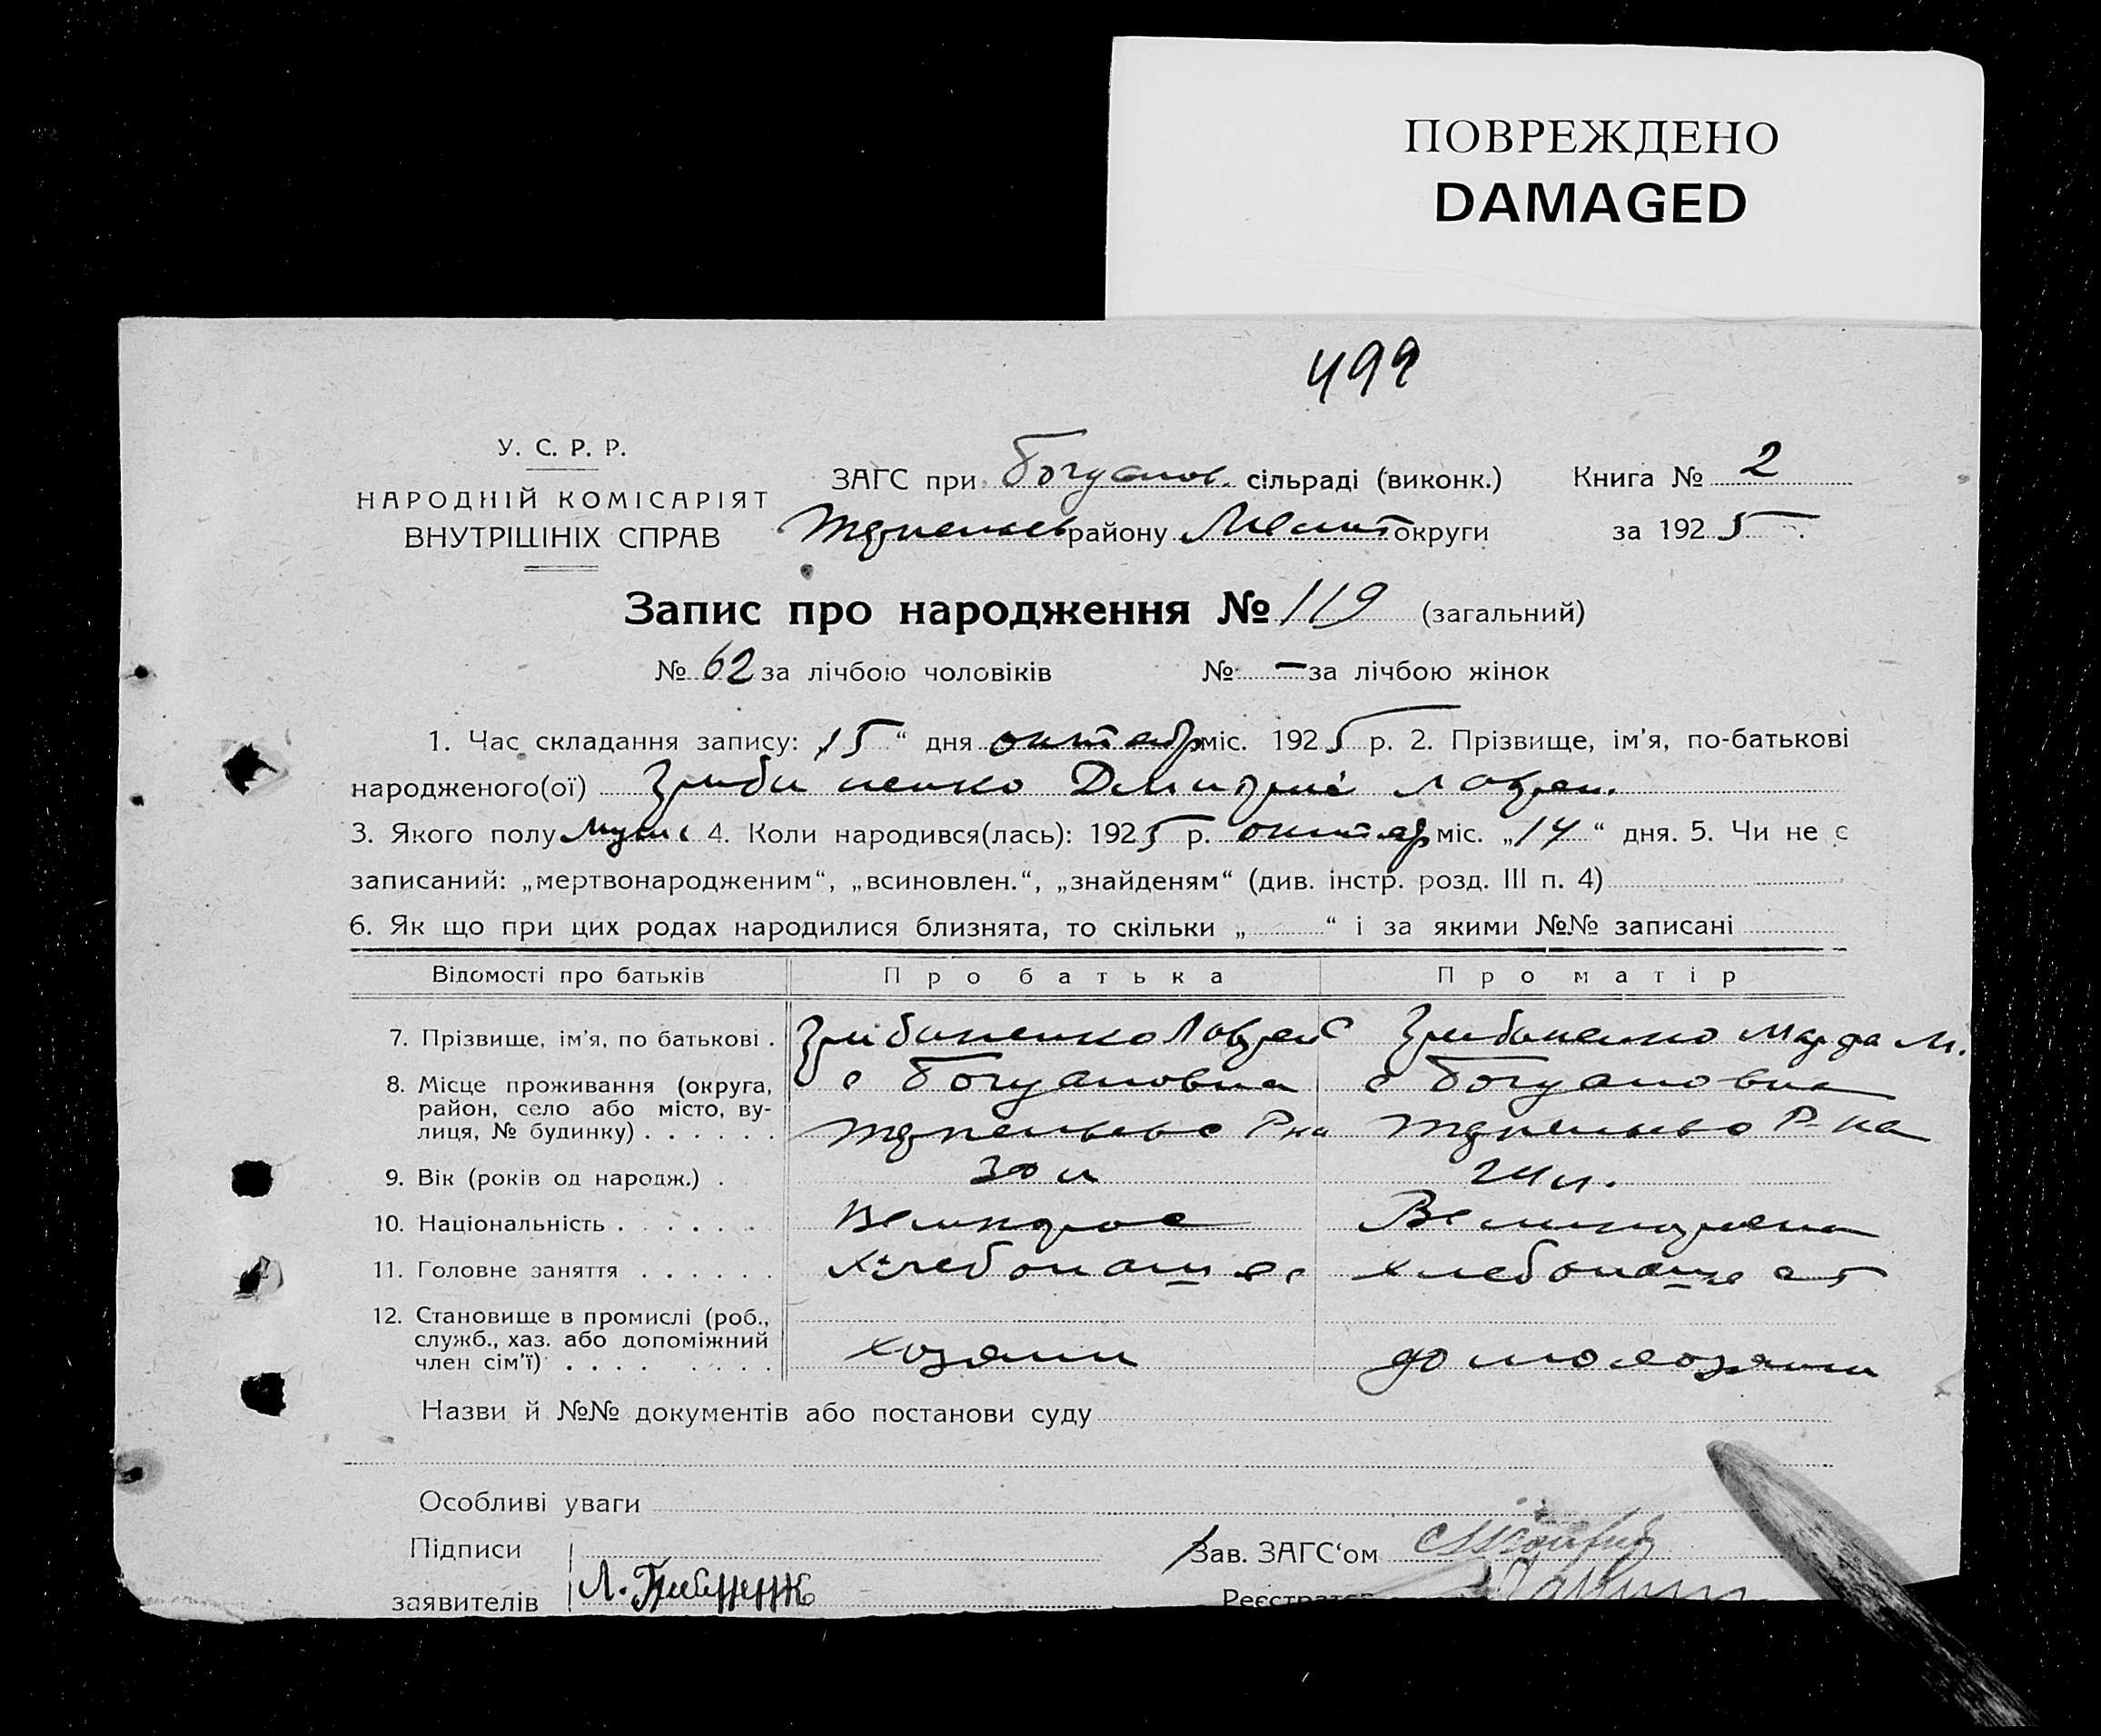 ПОВРЕЖДЕНО
DAMAGED
499
У. С. Р. Р.
НАРОДНІЙ КОМІСАРІЯТ
ВНУТРІШНІХ СПРАВ
ЗАГС при Богданов. сільраді (виконк.) Книга № 2
району Мелит округи за 1925
Запис про народження № 119 (загальний)
№ 62 за лічбою чоловіків № — за лічбою жінок
1. Час складання запису: 15 “ дня октябр міс. 1925 р. 2. Прізвище, ім'я, по-батькові
народженого(ої) Дмитрий Лаврен.
3. Якого полу мужс 4. Коли народився(лась): 1925 р. октябр міс. „14“ дня. 5. Чи не є
записаний: „мертвонародженим“, „всиновлен.“, „знайденям“ (див. інстр. розд. III п. 4)
6. Як що при цих родах народилися близнята, то скільки „ “ і за якими №№ записані
Відомості про батьків Про батька Про матір
7. Прізвище, ім'я, по батькові . Грибиненко Лаврен Грибиненко М.
8. Місце проживання (округа, с Богдановка с Богдановка
район, село або місто, ву-
лиця, № будинку) . . . . . . Р-на Р-на
9. Вік (років од народж.) . 30 л 24 л.
10. Національність . . . . . .
11. Головне заняття . . . . . . хлебопашес хлебопашест
12. Становище в промислі (роб.,
служб., хаз. або допоміжний
член сім'ї) . . . . . . . . хозяин домохозяин
Назви й №№ документів або постанови суду
Особливі уваги
Підписи Зав. ЗАГС‘ом
заявителів Л. Реєстратор